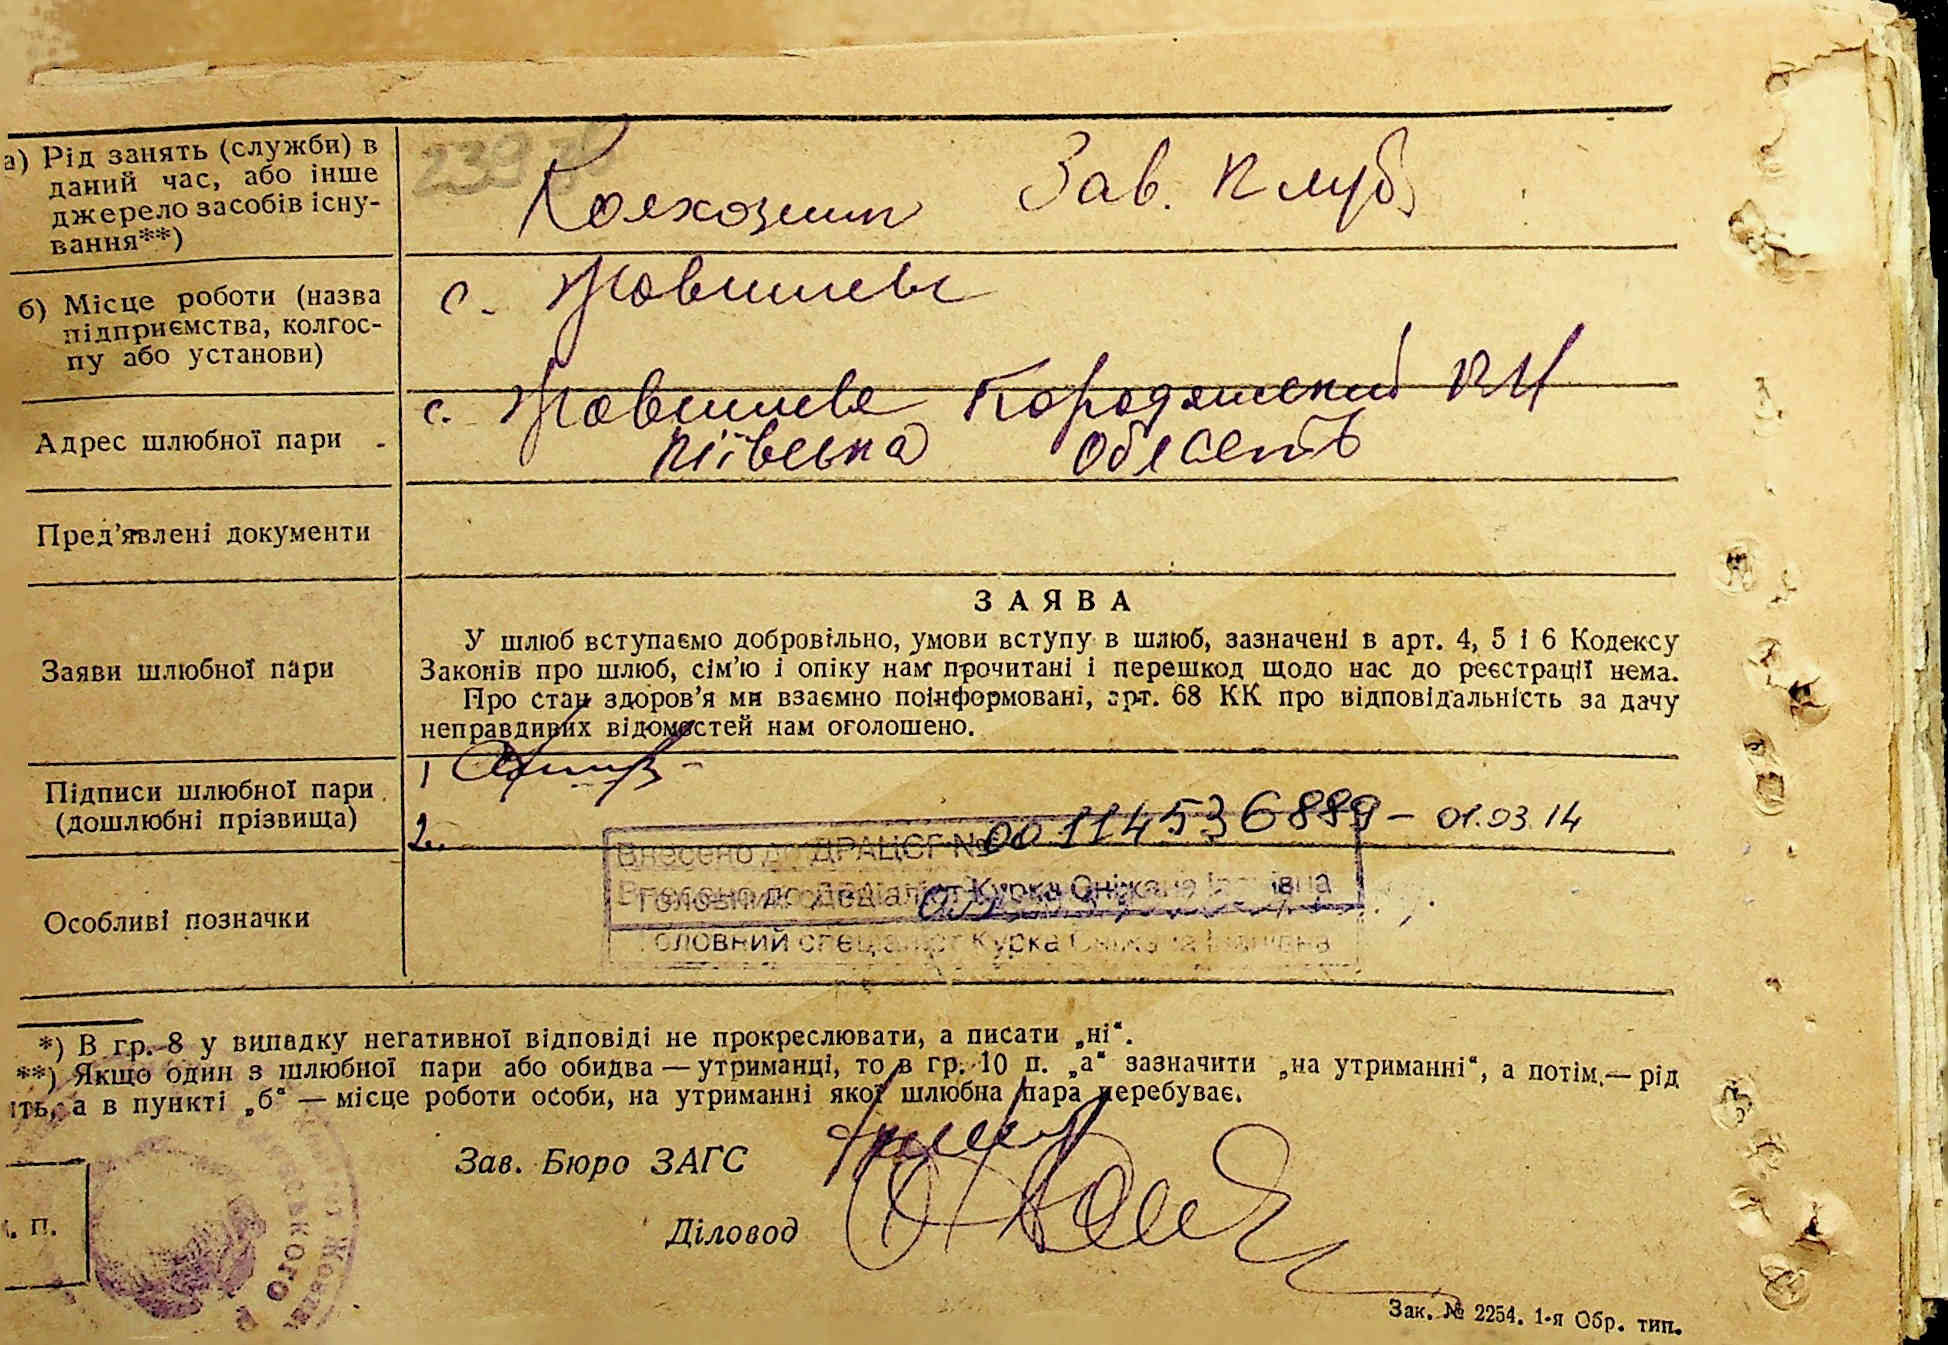 а) Рід занять (служби) в
даний час, або інше
джерело засобів існу-
вання**)
Колхозник Зав. Клуб
б) Місце роботи (назва
підприємства, колгос-
пу або установи)
с.
Адрес шлюбної пари
с. Бородянский РН
Київська Область
Пред'явлені документи
Заяви шлюбної пари
ЗАЯВА
У шлюб вступаємо добровільно, умови вступу в шлюб, зазначені в арт. 4, 5 і 6 Кодексу
Законів про шлюб, сім'ю і опіку нам прочитані і перешкод щодо нас до реєстрації нема.
Про стан здоров'я ми взаємно поінформовані, арт. 68 КК про відповідальність за дачу
неправдивих відомостей нам оголошено.
Підписи шлюбної пари
(дошлюбні прізвища)
1
2.
Внесено до ДРАЦСГ № 00114536889 – 01.03.14
Курка
Особливі позначки
Головний спеціаліст Курка
*) В гр. 8 у випадку негативної відповіді не прокреслювати, а писати „ні“.
**) Якщо один з шлюбної пари або обидва — утриманці, то в гр. 10 п. „а“ зазначити „на утриманні“, а потім — рід
іть, а в пункті „б“ — місце роботи особи, на утриманні якої шлюбна пара перебуває.
Зав. Бюро ЗАГС
. П.
Діловод
Зак. № 2254. 1-я Обр. тип.